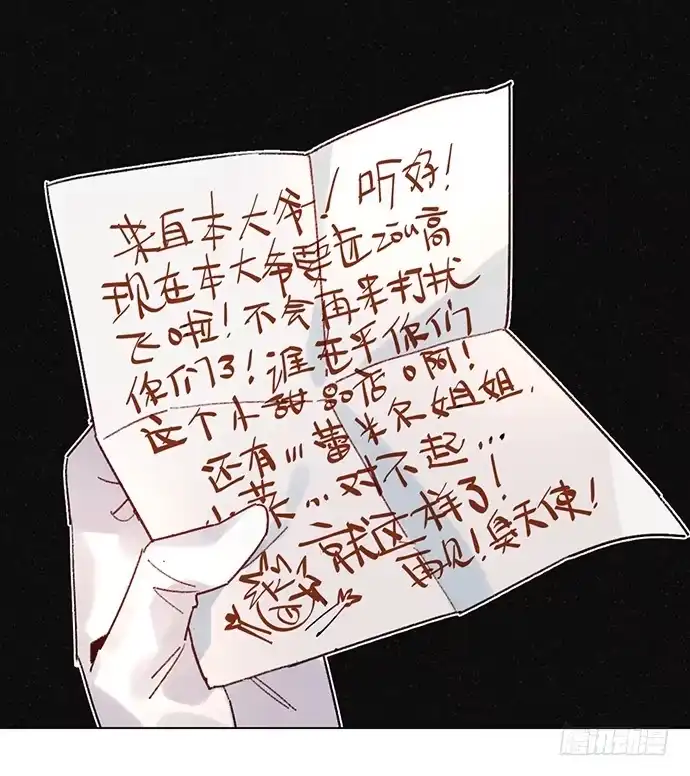 来自本大爷！听好！
现在本大爷要远zou高
飞啦！不会再来打扰
你们了！谁在乎你们
这个小甜品店啊！
还有…蕾米尔姐姐，
小菜…对不起…
就这样了！
再见！臭天使！
腾讯动漫